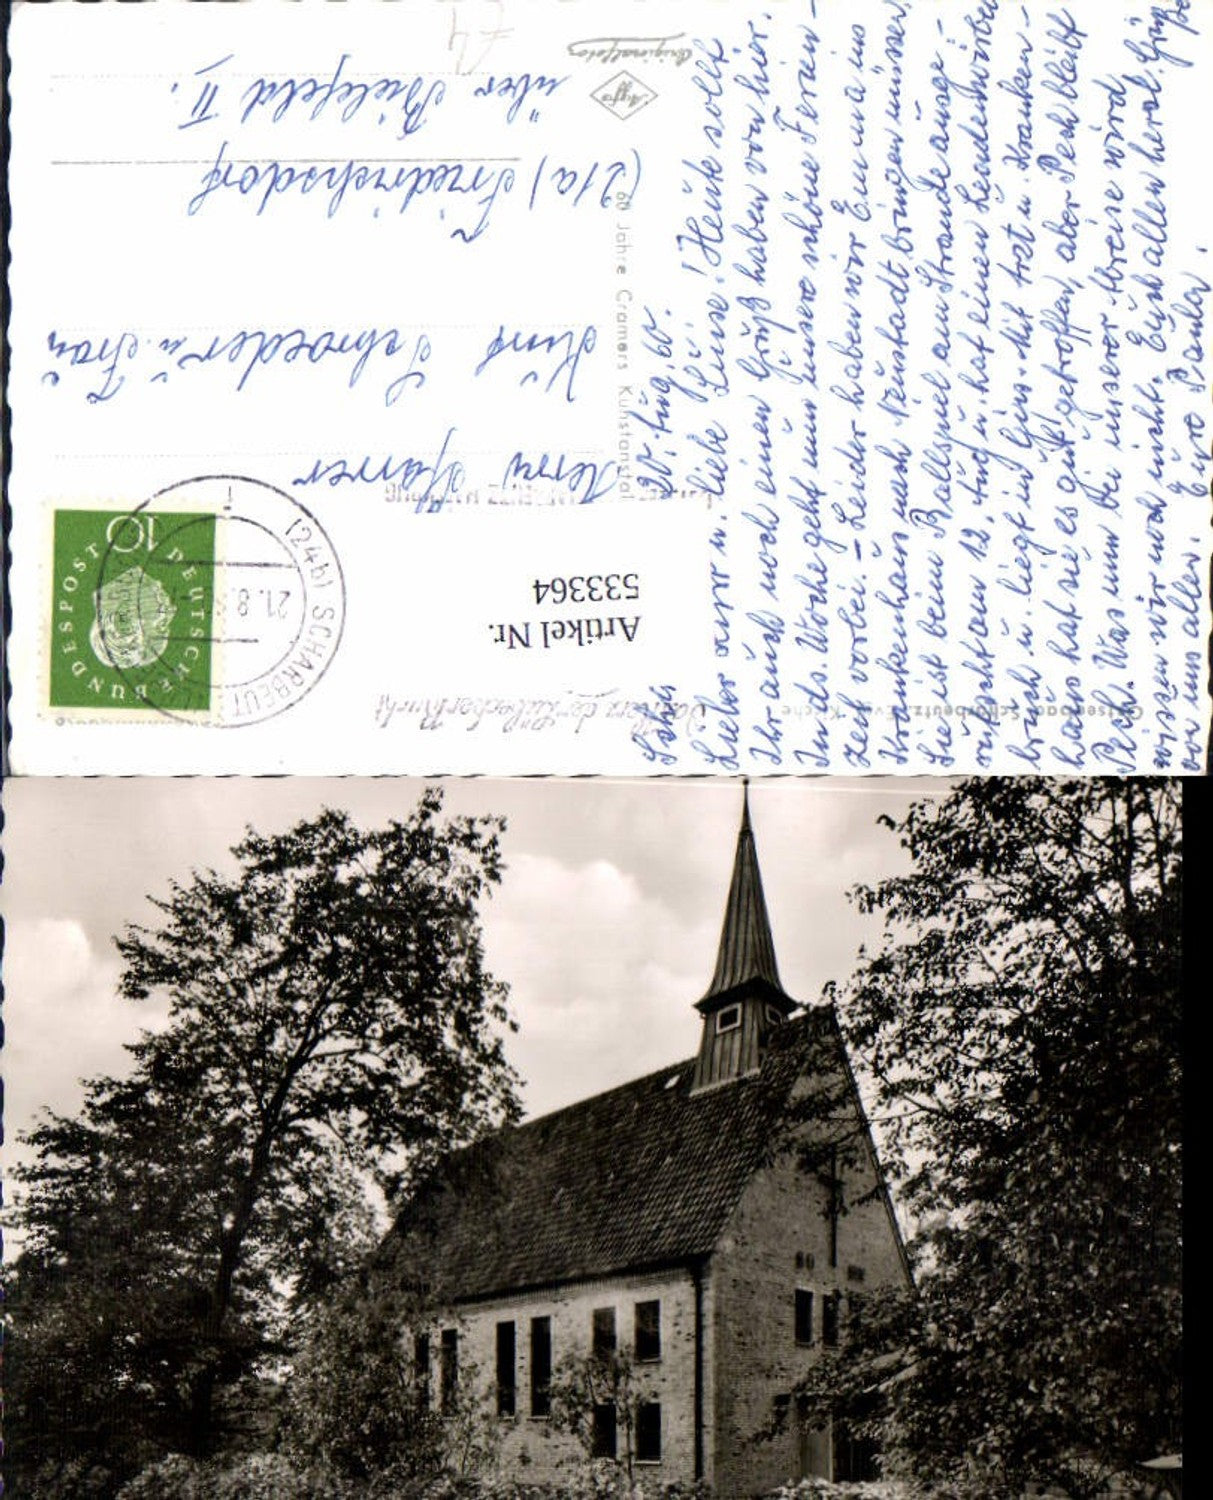 Ostseebad Scharbeutz, Evg. Kirche
60 Jahre Crammers Kunstanstalt
Agfa
Originalfoto
Artikel Nr.
533364
DEUTSCHE BUNDESPOST
10
(24b) SCHARBEUTZ
21. 8.
20. Aug. 60.
Lieber Kurt u. liebe Luise! Heute sollt
Ihr auch noch einen Gruß haben von hier.
In ds. Woche geht nun unsere schöne Ferien-
zeit vorbei. – Leider haben wir Emma ins
Krankenhaus nach Neustadt bringen müssen.
Sie ist beim Ballspiel am Strande ausge-
rutscht am 12. Aug. u. hat einen Lendenwirbel-
bruch u. liegt in Gips. Mit Arzt u. Kranken-
haus hat sie es gut getroffen, aber Pech bleibt
Pech. Was nun bei unserer Abreise wird
wissen wir noch nicht. Euch allen herzl. Grüße
von uns allen. Eure Paula.
Herrn Pfarrer
Kurt Schroeder u. Frau
(21a) Friedrichsdorf
über Bielefeld II.